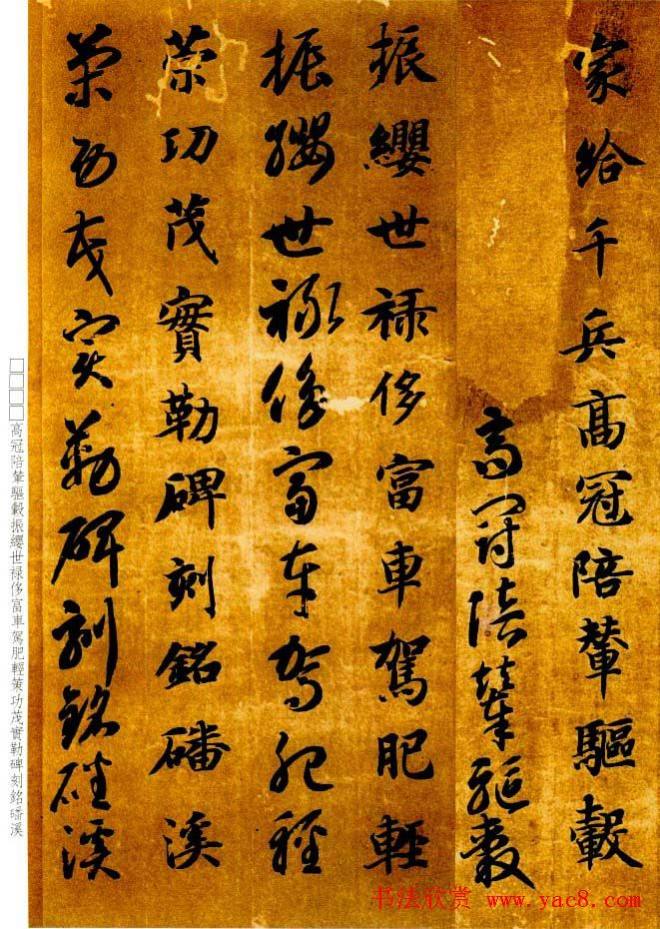 家給千兵高冠陪輦驅轂
高冠陪輦驅轂
振纓世禄侈富車駕肥輕
振纓世禄侈富車駕肥輕
策功茂實勒碑刻銘磻溪
策功茂實勒碑刻銘磻溪
□□□□高冠陪輦驅轂振纓世禄侈富車駕肥輕策功茂實勒碑刻銘磻溪
书法欣赏 www.yac8.com